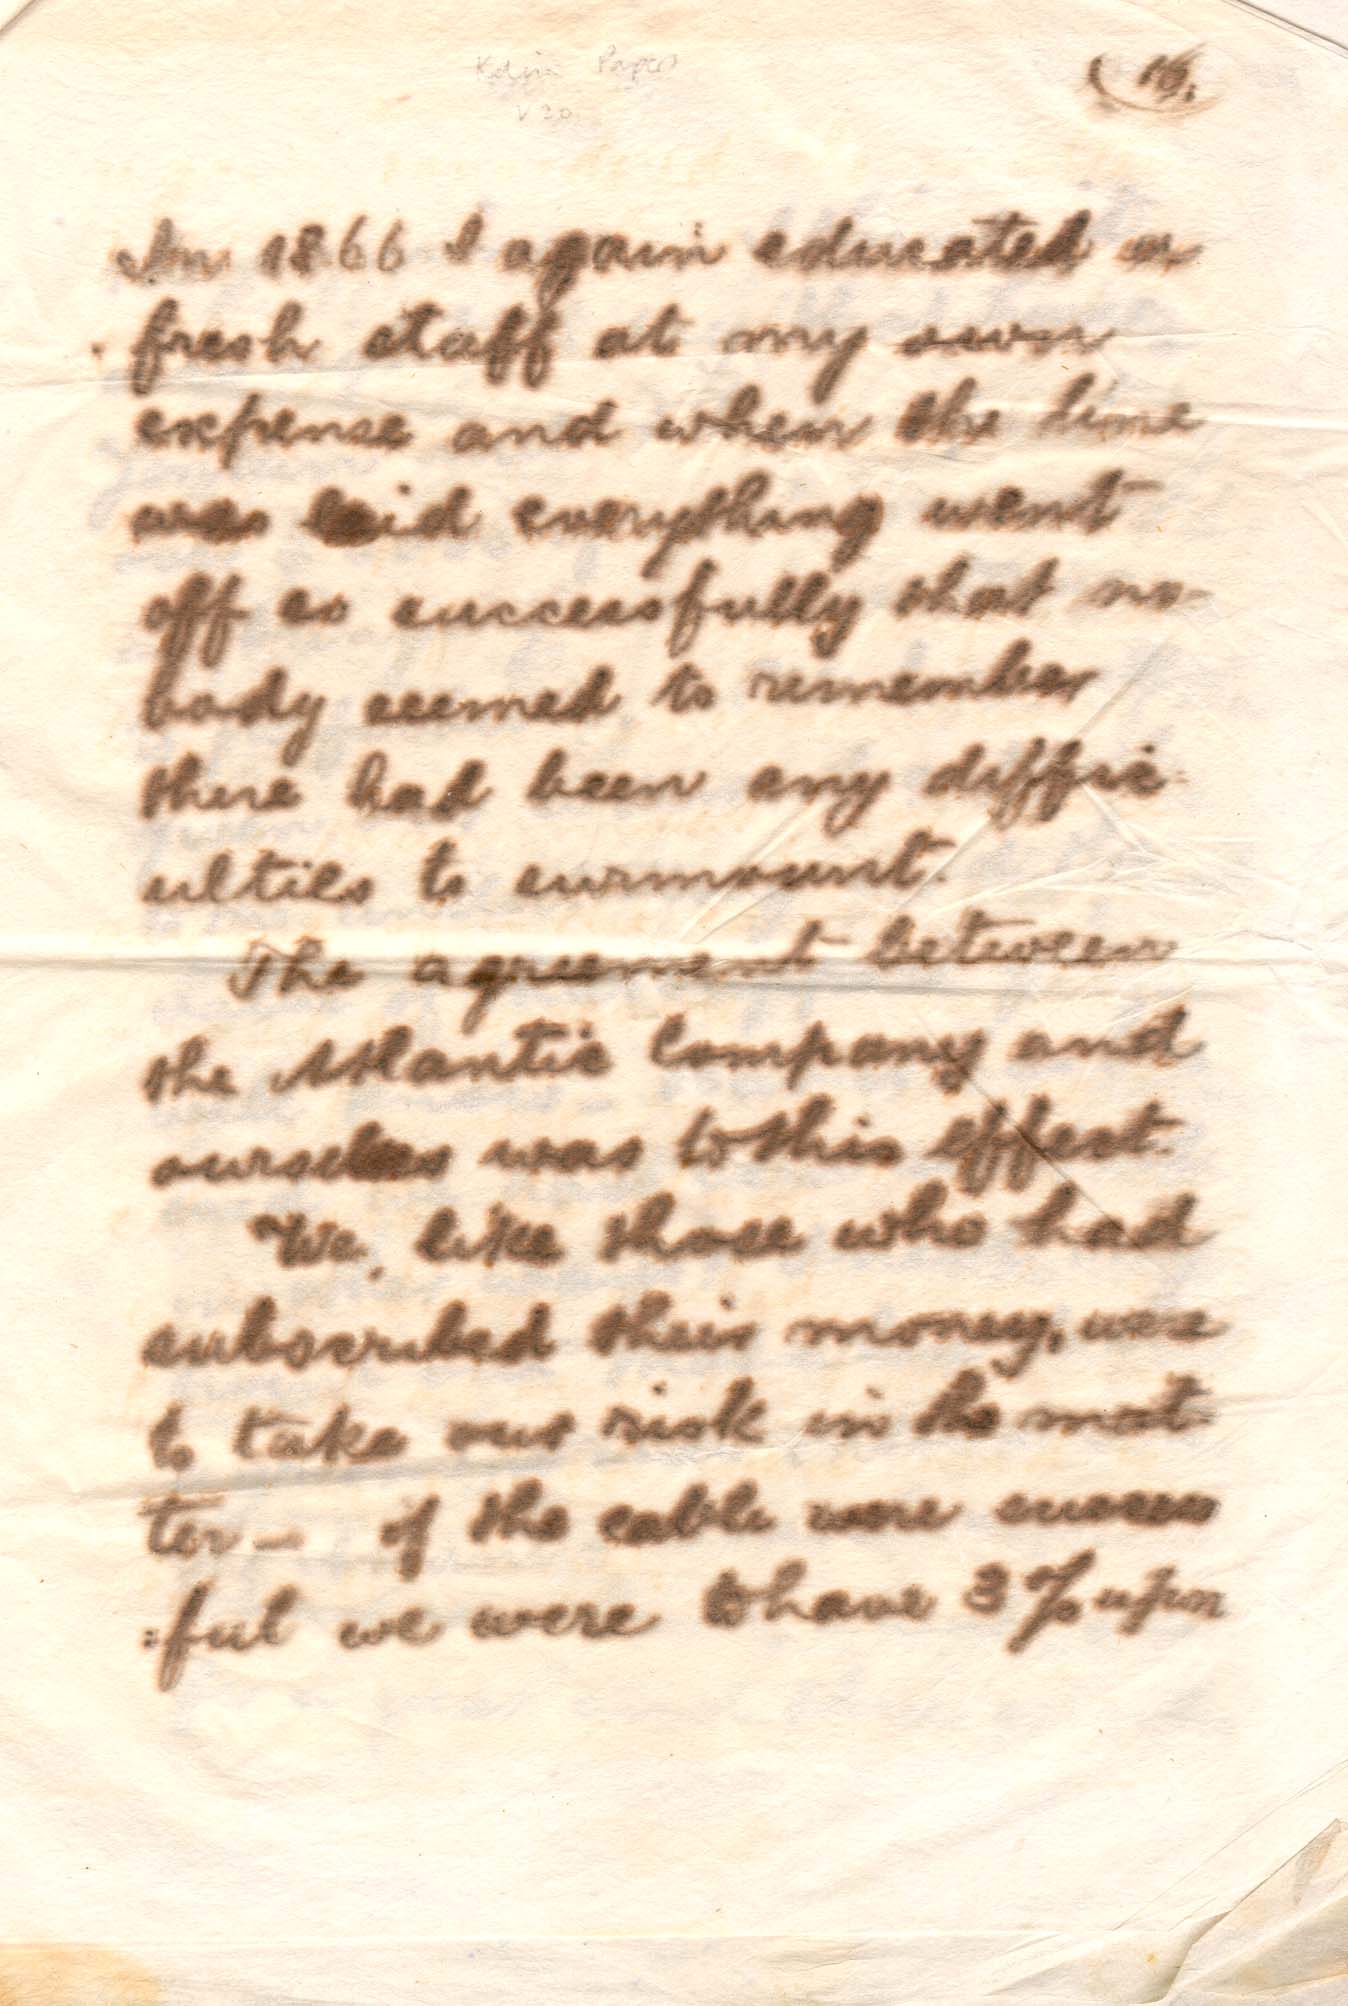 Kelvin Papers
V 20
In 1866 I again educated a
fresh staff at my own
expense and when the time
was laid everything went
off so successfully that no-
body seemed to remember
there had been any diffic-
ulties to surmount.
The agreement between
the Atlantic Company and
ourselves was to this effect.
We, like those who had
subscribed their money, were
to take our risk in the mat-
ter — if the cable were success
=ful we were to have 3% upon